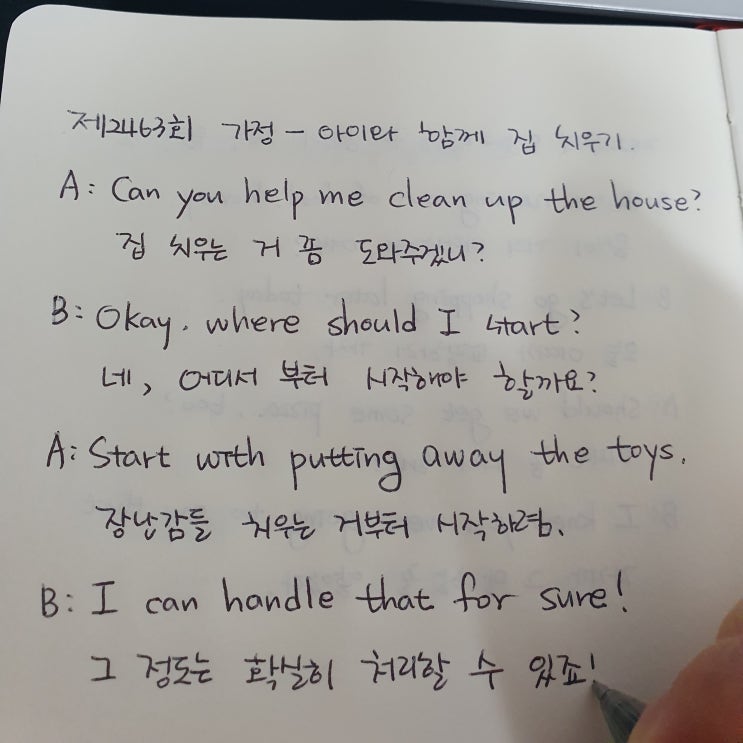 제2463회 가정 - 아이와 함께 집 치우기.
A: Can you help me clean up the house?
집 치우는 거 좀 도와주겠니?
B: Okay. where should I start?
네, 어디서 부터 시작해야 할까요?
A: Start with putting away the toys.
장난감들 치우는 거부터 시작하렴.
B: I can handle that for sure!
그 정도는 확실히 처리할 수 있죠!